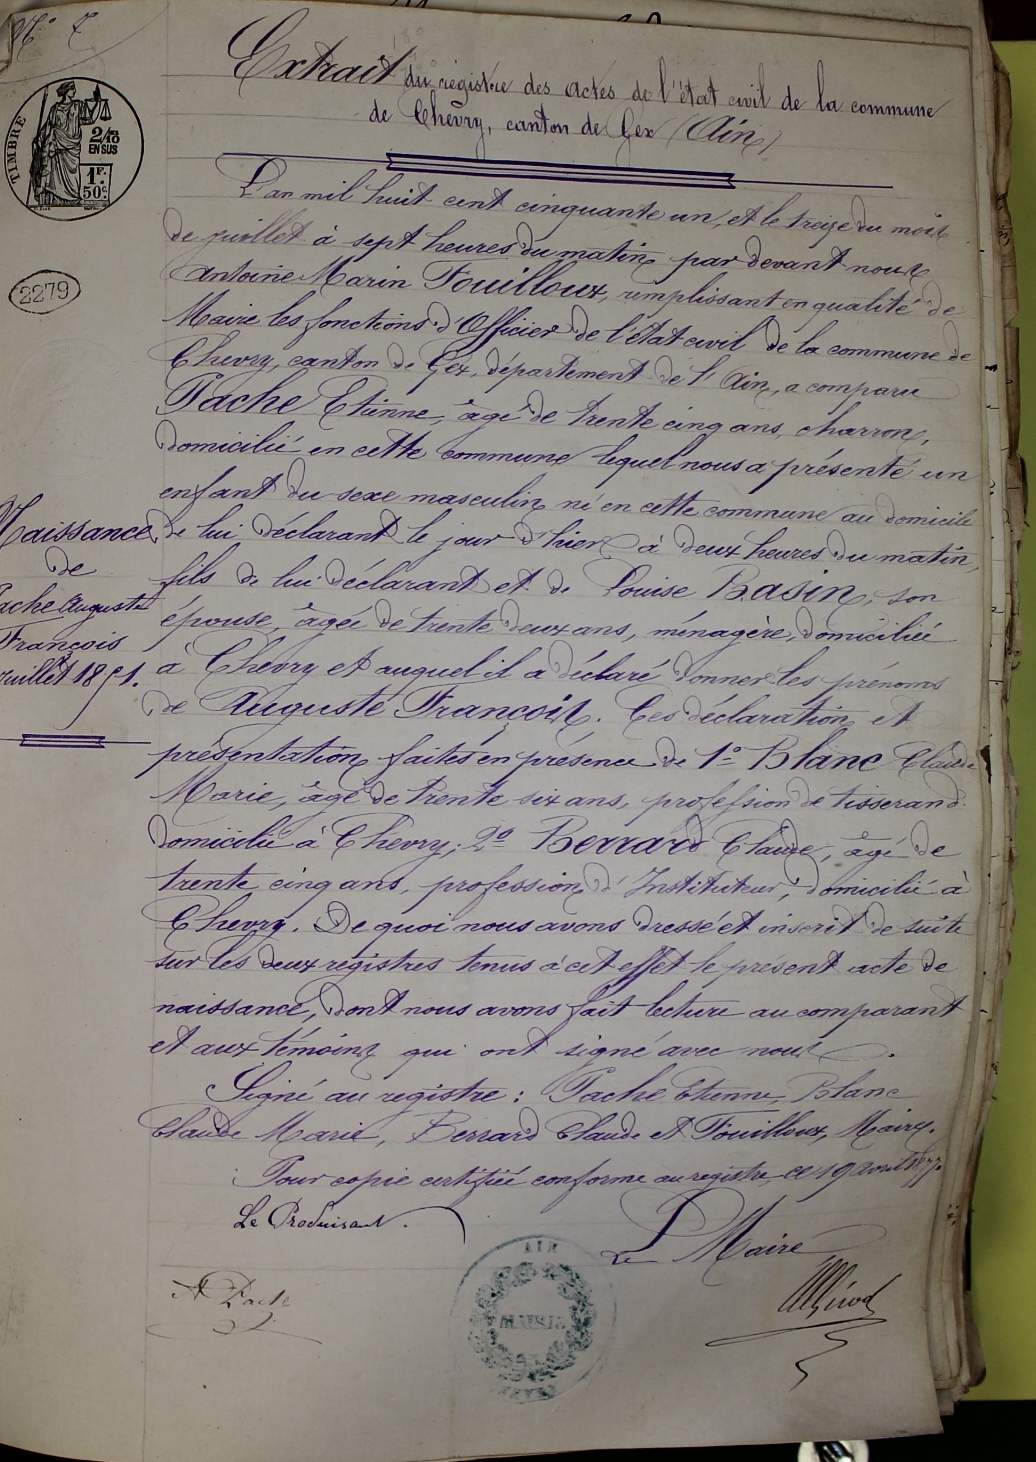 N° 7
TIMBRE
2/10
EN SUS
1F.
50c
2279
Extrait du registre des actes de l'état civil de la commune
de Chevry, canton de Gex (Ain)
L'an mil huit cent cinquante un, et le treize du mois
de juillet à sept heures du matin par devant nous
Antoine Marin Fouilloux, remplissant en qualité de
Maire les fonctions d'Officier de l'état civil de la commune de
Chevry, canton de Gex, département de l'Ain, a comparu
Pache Etienne, âgé de trente cinq ans, charron,
domicilié en cette commune lequel nous a présenté un
enfant du sexe masculin né en cette commune au domicile
de lui déclarant le jour d'hier à deux heures du matin,
fils de lui déclarant et de Louise Basin, son
épouse, âgée de trente deux ans, ménagère, domiciliée
à Chevry et auquel il a déclaré donner les prénoms
de Auguste François. Ces déclaration et
présentation faites en présence de 1° Blanc Claude
Marie, âgé de trente six ans, profession de tisserand
domicilié à Chevry; 2° Berrard Claude, âgé de
trente cinq ans, profession d'Instituteur, domicilié à
Chevry. De quoi nous avons dressé et inscrit de suite
sur les deux registres tenus à cet effet le présent acte de
naissance, dont nous avons fait lecture au comparant
et aux témoins qui ont signé avec nous.
Signé au registre : Pache Etienne, Blanc
Claude Marie, Berrard Claude et Fouilloux, Maire.
Pour copie certifiée conforme au registre, ce 19 avril 1877.
Le Produisant.
Le Maire
A Pache
AIN
MAIRIE
Naissance
de
Pache Auguste
François
juillet 1851.